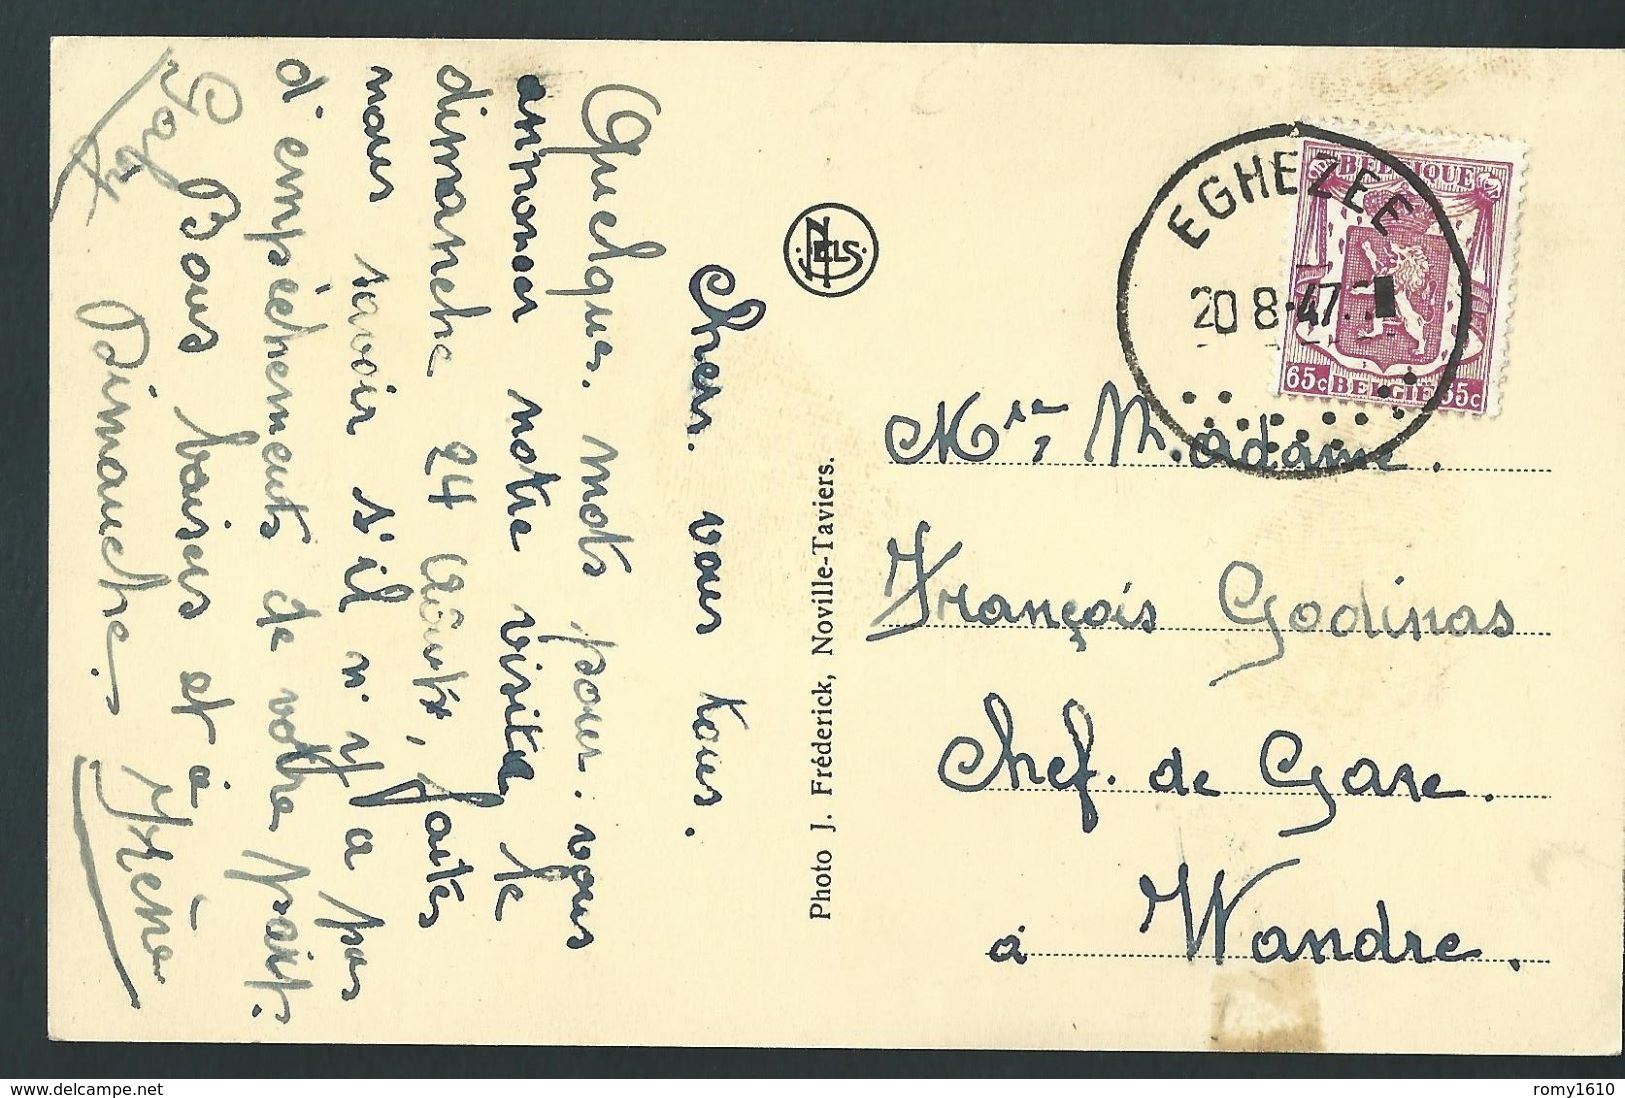 Chers vous tous.
Quelques mots pour vous
annoncer notre visite le
dimanche 24 Août, faites
nous savoir s'il n'y a pas
d'empêchements de votre part.
Bons baisers et à
Dimanche.
Gaby
Irène
NELS
Photo J. Fréderick, Noville-Taviers.
BELGIQUE
65c BELGIE 65c
EGHEZEE
20 8-47
Mr, Madame.
François Godinas
Chef. de Gare.
à Wandre.
delcampe.net
romy1610